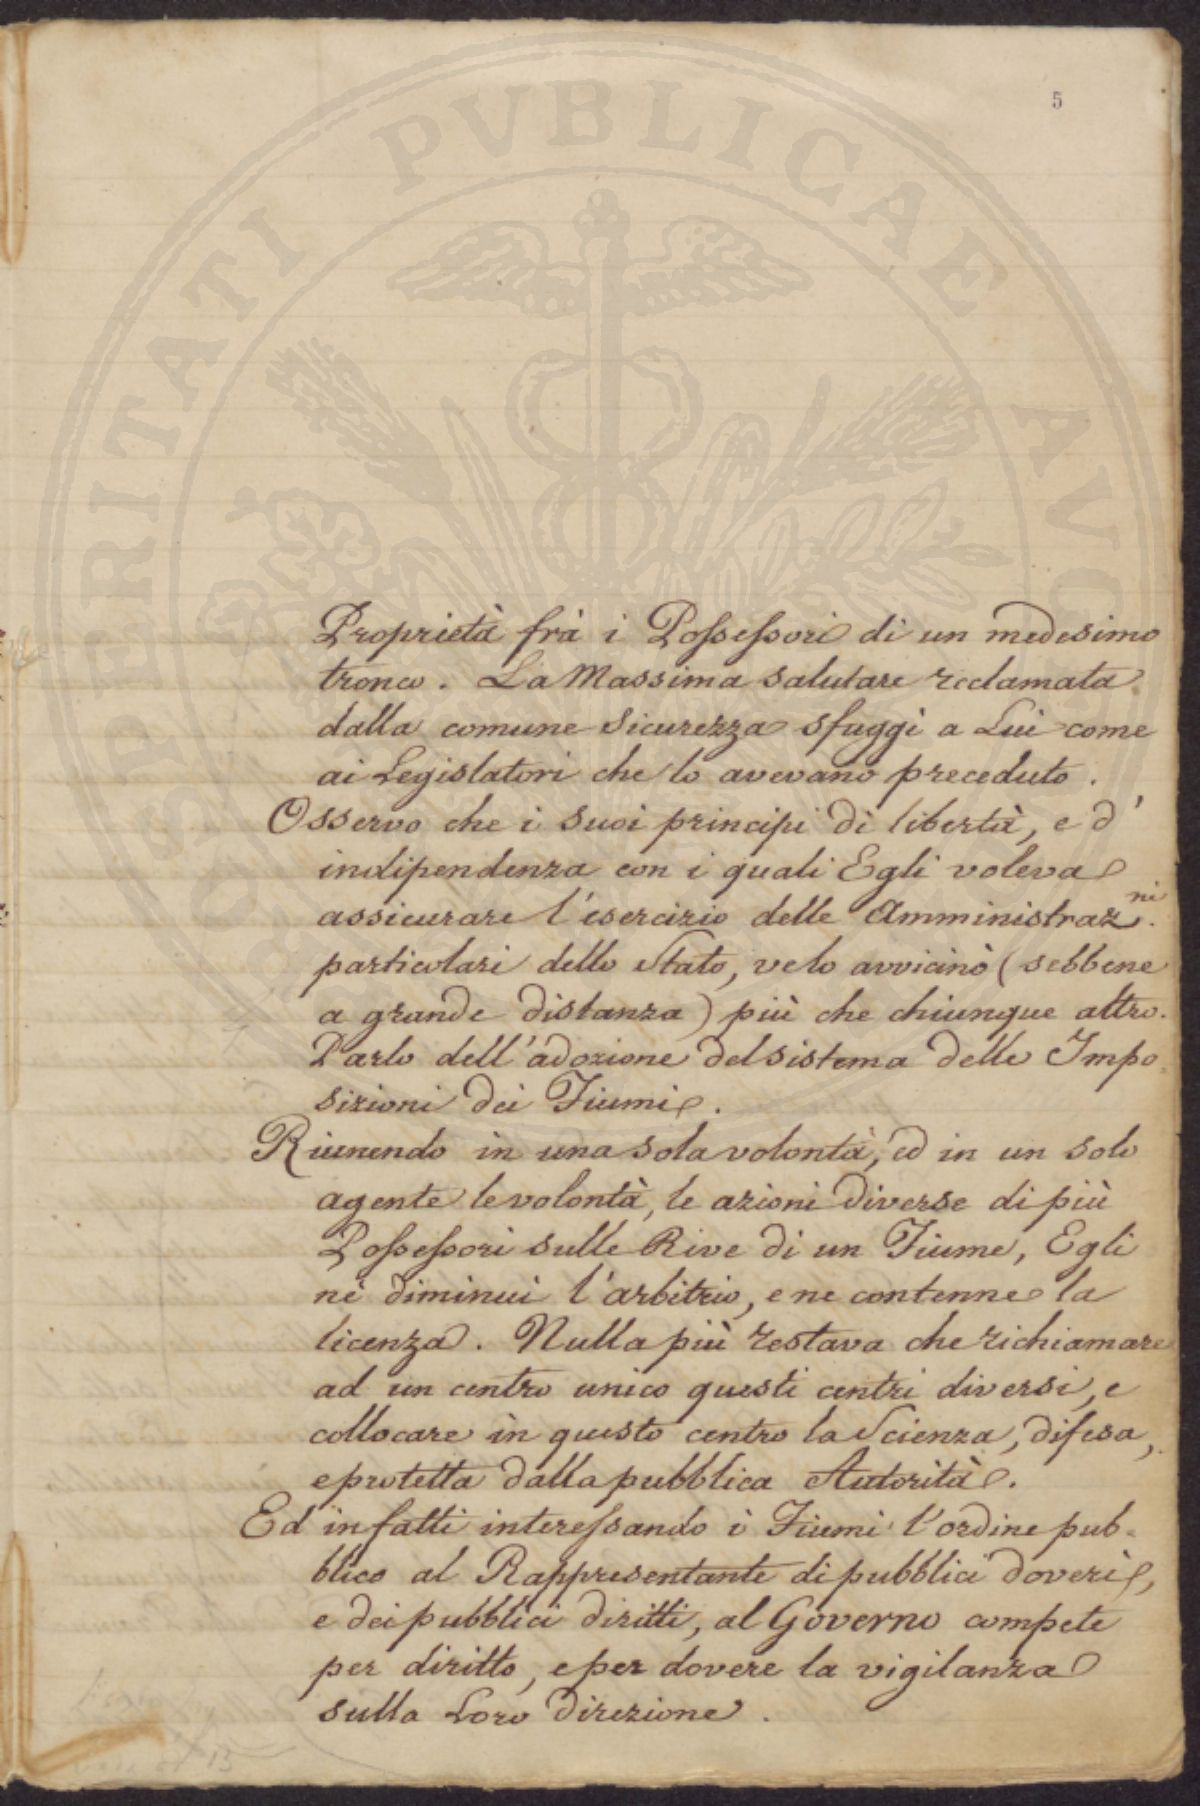 5
PROSPERITATI PVBLICAE AVGENDAE
Proprietà frà i Possessori di un medesimo
tronco. La Massima salutare reclamata
dalla comune sicurezza sfuggì a Lui come
ai Legislatori che lo avevano preceduto.
Osservo che i suoi principi di libertà, e d'
indipendenza con i quali Egli voleva
assicurare l'esercizio delle Amministraz.ni
particolari dello Stato, velo avvicinò (sebbene
a grande distanza) più che chiunque altro.
Parlo dell'adozione del sistema delle Impo
sizioni dei Fiumi.
Riunendo in una sola volontà, ed in un solo
agente le volontà, le azioni diverse di più
Possessori sulle Rive di un Fiume, Egli
ne diminuì l'arbitrio, e ne contenne la
licenza. Nulla più restava che richiamare
ad un centro unico questi centri diversi, e
collocare in questo centro la Scienza, difesa,
e protetta dalla pubblica Autorità.
Ed infatti interessando i Fiumi l'ordine pub-
blico al Rappresentante di pubblici doveri,
e dei pubblici diritti, al Governo compete
per diritto, e per dovere la vigilanza
sulla Loro direzione.